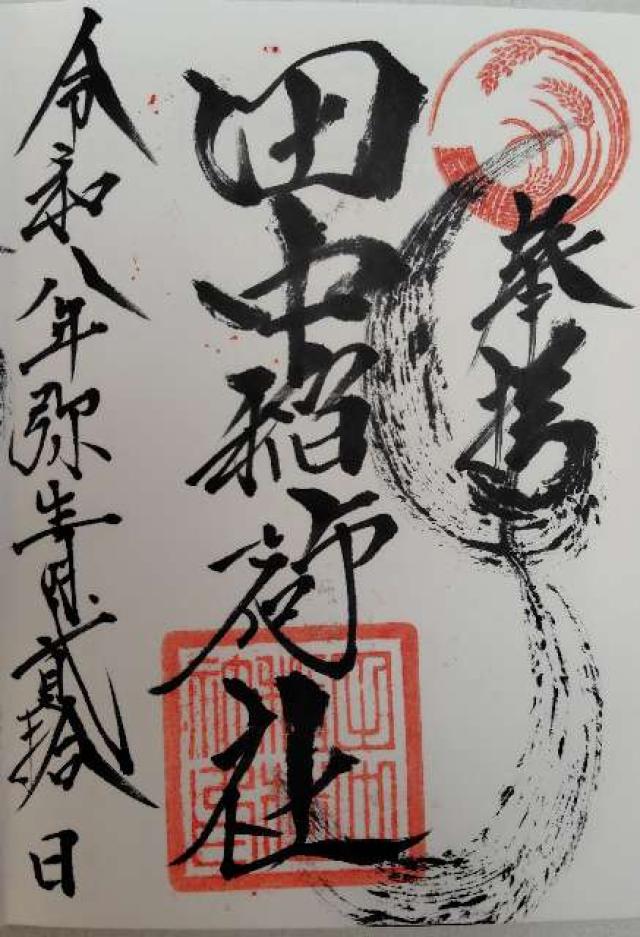 奉拝
田中稲荷社
令和八年弥生月貳拾日